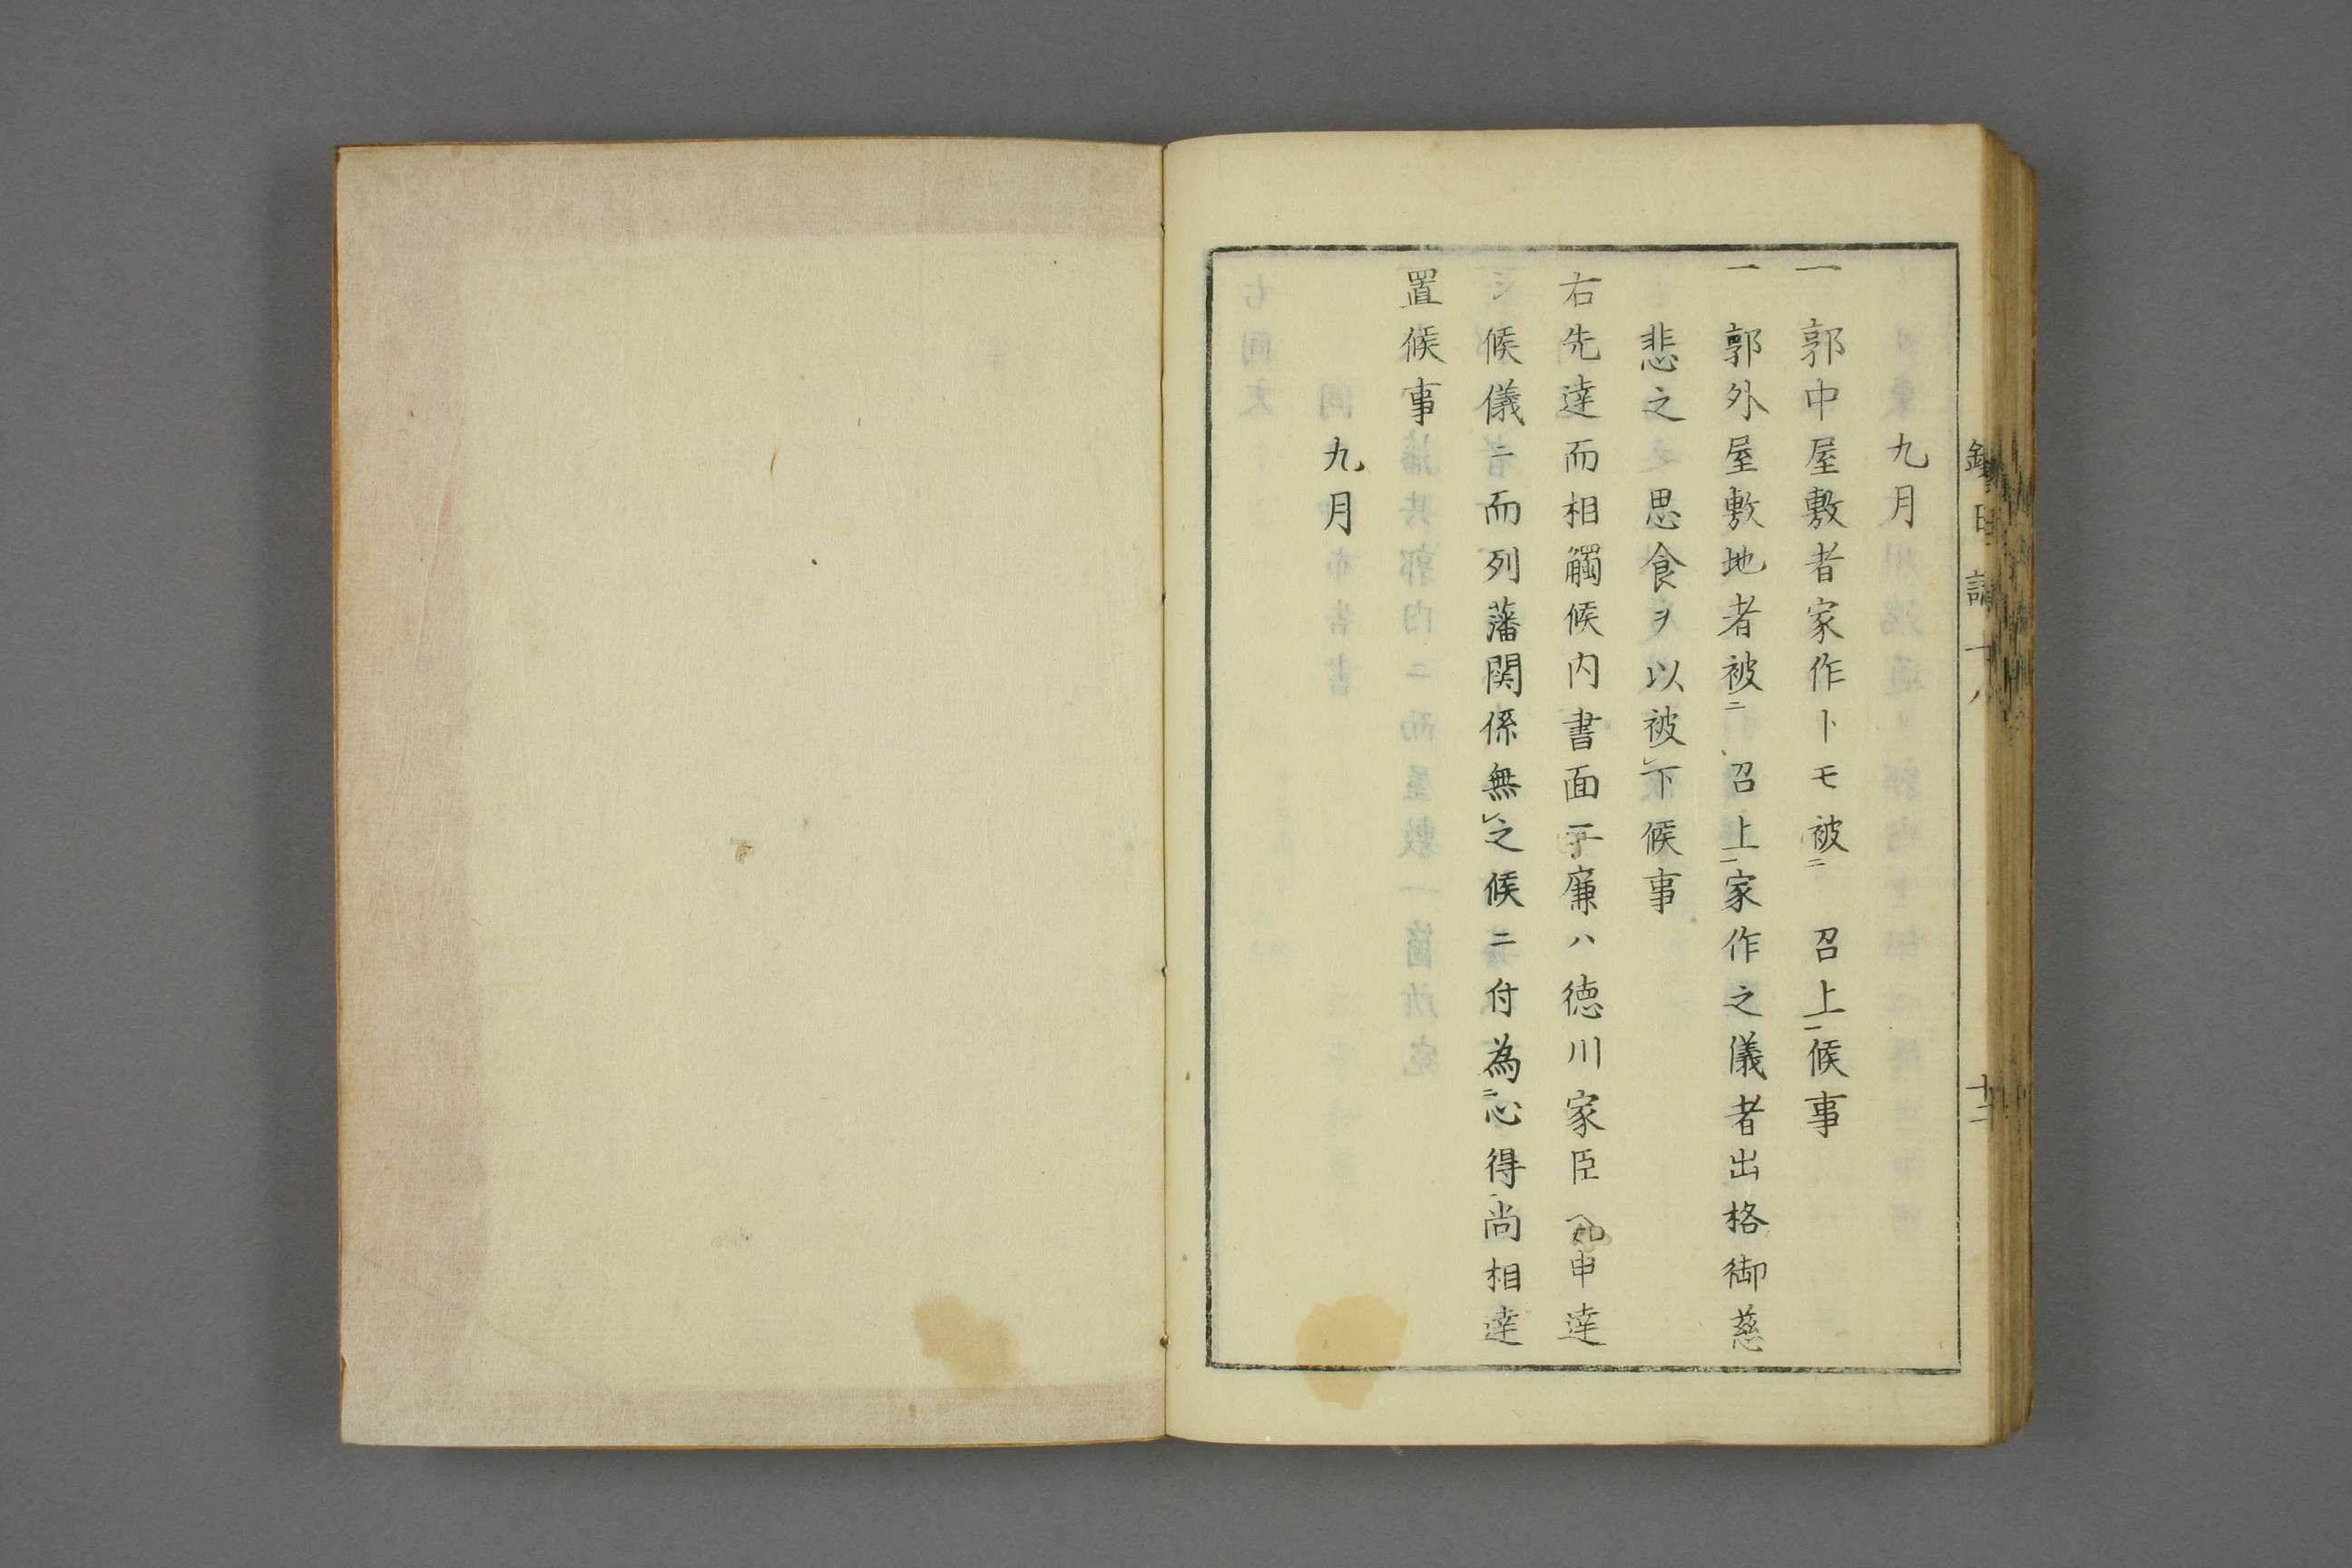 九月
一郭中屋敷者家作トモ被㆓　召上㆒候事
一郭外屋敷地者被㆓　召上㆒家作之儀者出格御慈
悲之思食ヲ以被㆑下候事
右先達而相觸候内書面一廉ハ徳川家臣ヘ申達
シ候儀ニ而列藩関係無㆑之候ニ付為㆓心得㆒尚相達
置候事
九月